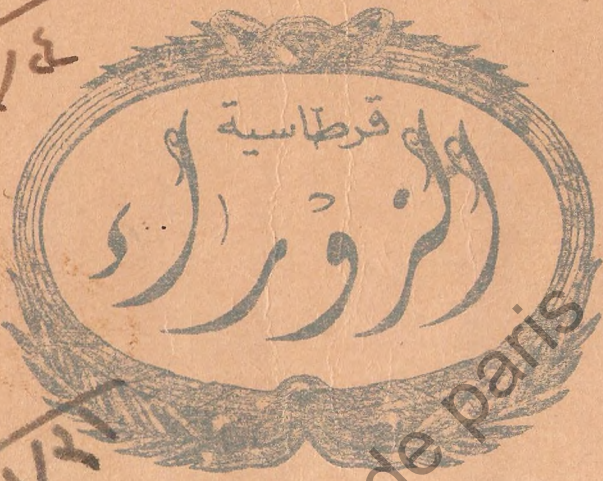 قرطاسية
الزوراء
de paris